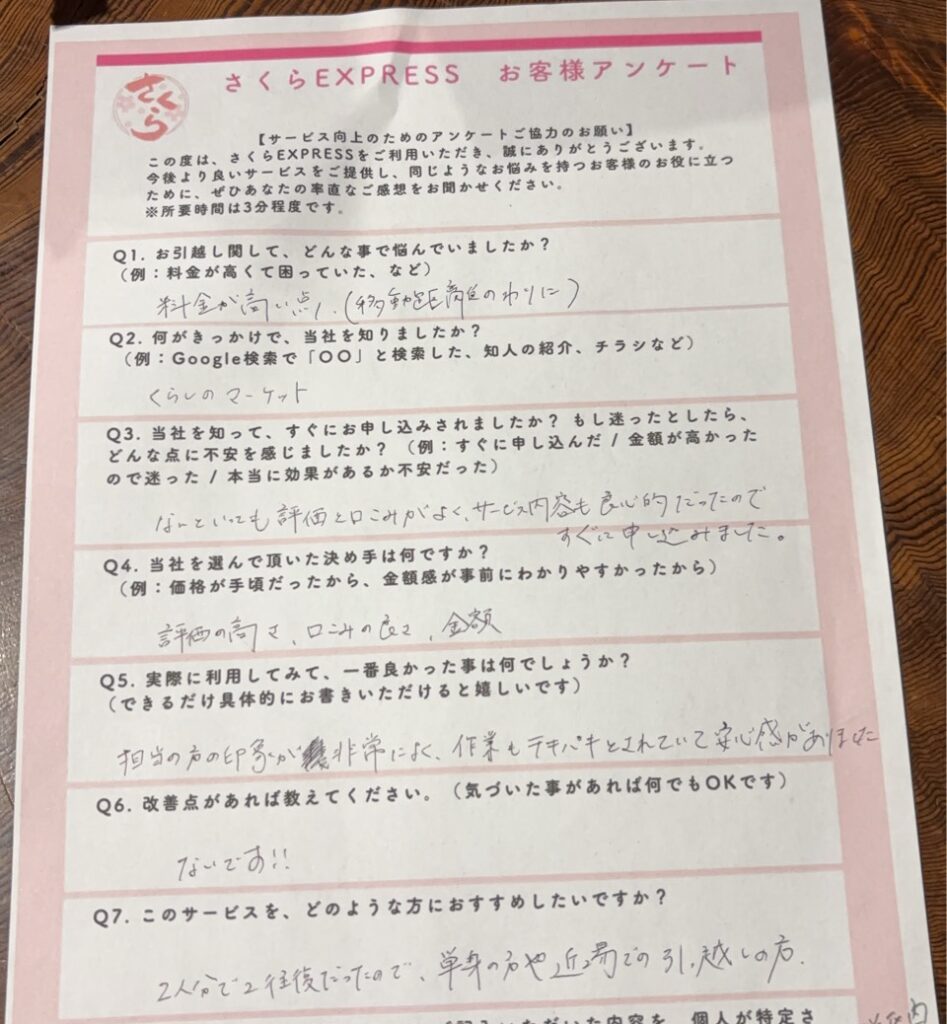 さくら
さくらEXPRESS お客様アンケート
【サービス向上のためのアンケートご協力のお願い】
この度は、さくらEXPRESSをご利用いただき、誠にありがとうございます。
今後より良いサービスをご提供し、同じようなお悩みを持つお客様のお役に立つ
ために、ぜひあなたの率直なご感想をお聞かせください。
※所要時間は3分程度です。
Q1. お引越し関して、どんな事で悩んでいましたか？
（例：料金が高くて困っていた、など）
料金が高い点、(移動距離のわりに)
Q2. 何がきっかけで、当社を知りましたか？
（例：Google検索で「〇〇」と検索した、知人の紹介、チラシなど）
くらしのマーケット
Q3. 当社を知って、すぐにお申し込みされましたか？ もし迷ったとしたら、
どんな点に不安を感じましたか？（例：すぐに申し込んだ / 金額が高かった
ので迷った / 本当に効果があるか不安だった）
なんといっても評価と口こみがよく、サービス内容も良心的だったので
すぐに申し込みました。
Q4. 当社を選んで頂いた決め手は何ですか？
（例：価格が手頃だったから、金額感が事前にわかりやすかったから）
評価の高さ、口こみの良さ、金額
Q5. 実際に利用してみて、一番良かった事は何でしょうか？
（できるだけ具体的にお書きいただけると嬉しいです）
担当の方の印象が非常によく、作業もテキパキとされていて安心感がありました
Q6. 改善点があれば教えてください。（気づいた事があれば何でもOKです）
ないです!!
Q7. このサービスを、どのような方におすすめしたいですか？
2人分で2往復だったので、単身の方や近場での引っ越しの方.
いただいた内容を、個人が特定さ